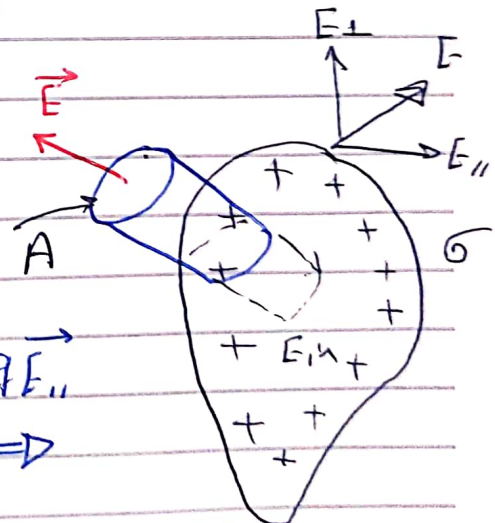 E⊥
E
E⃗
E//
A
σ
+ + + + + + + + + + + +
E in
qE⃗//
⇒